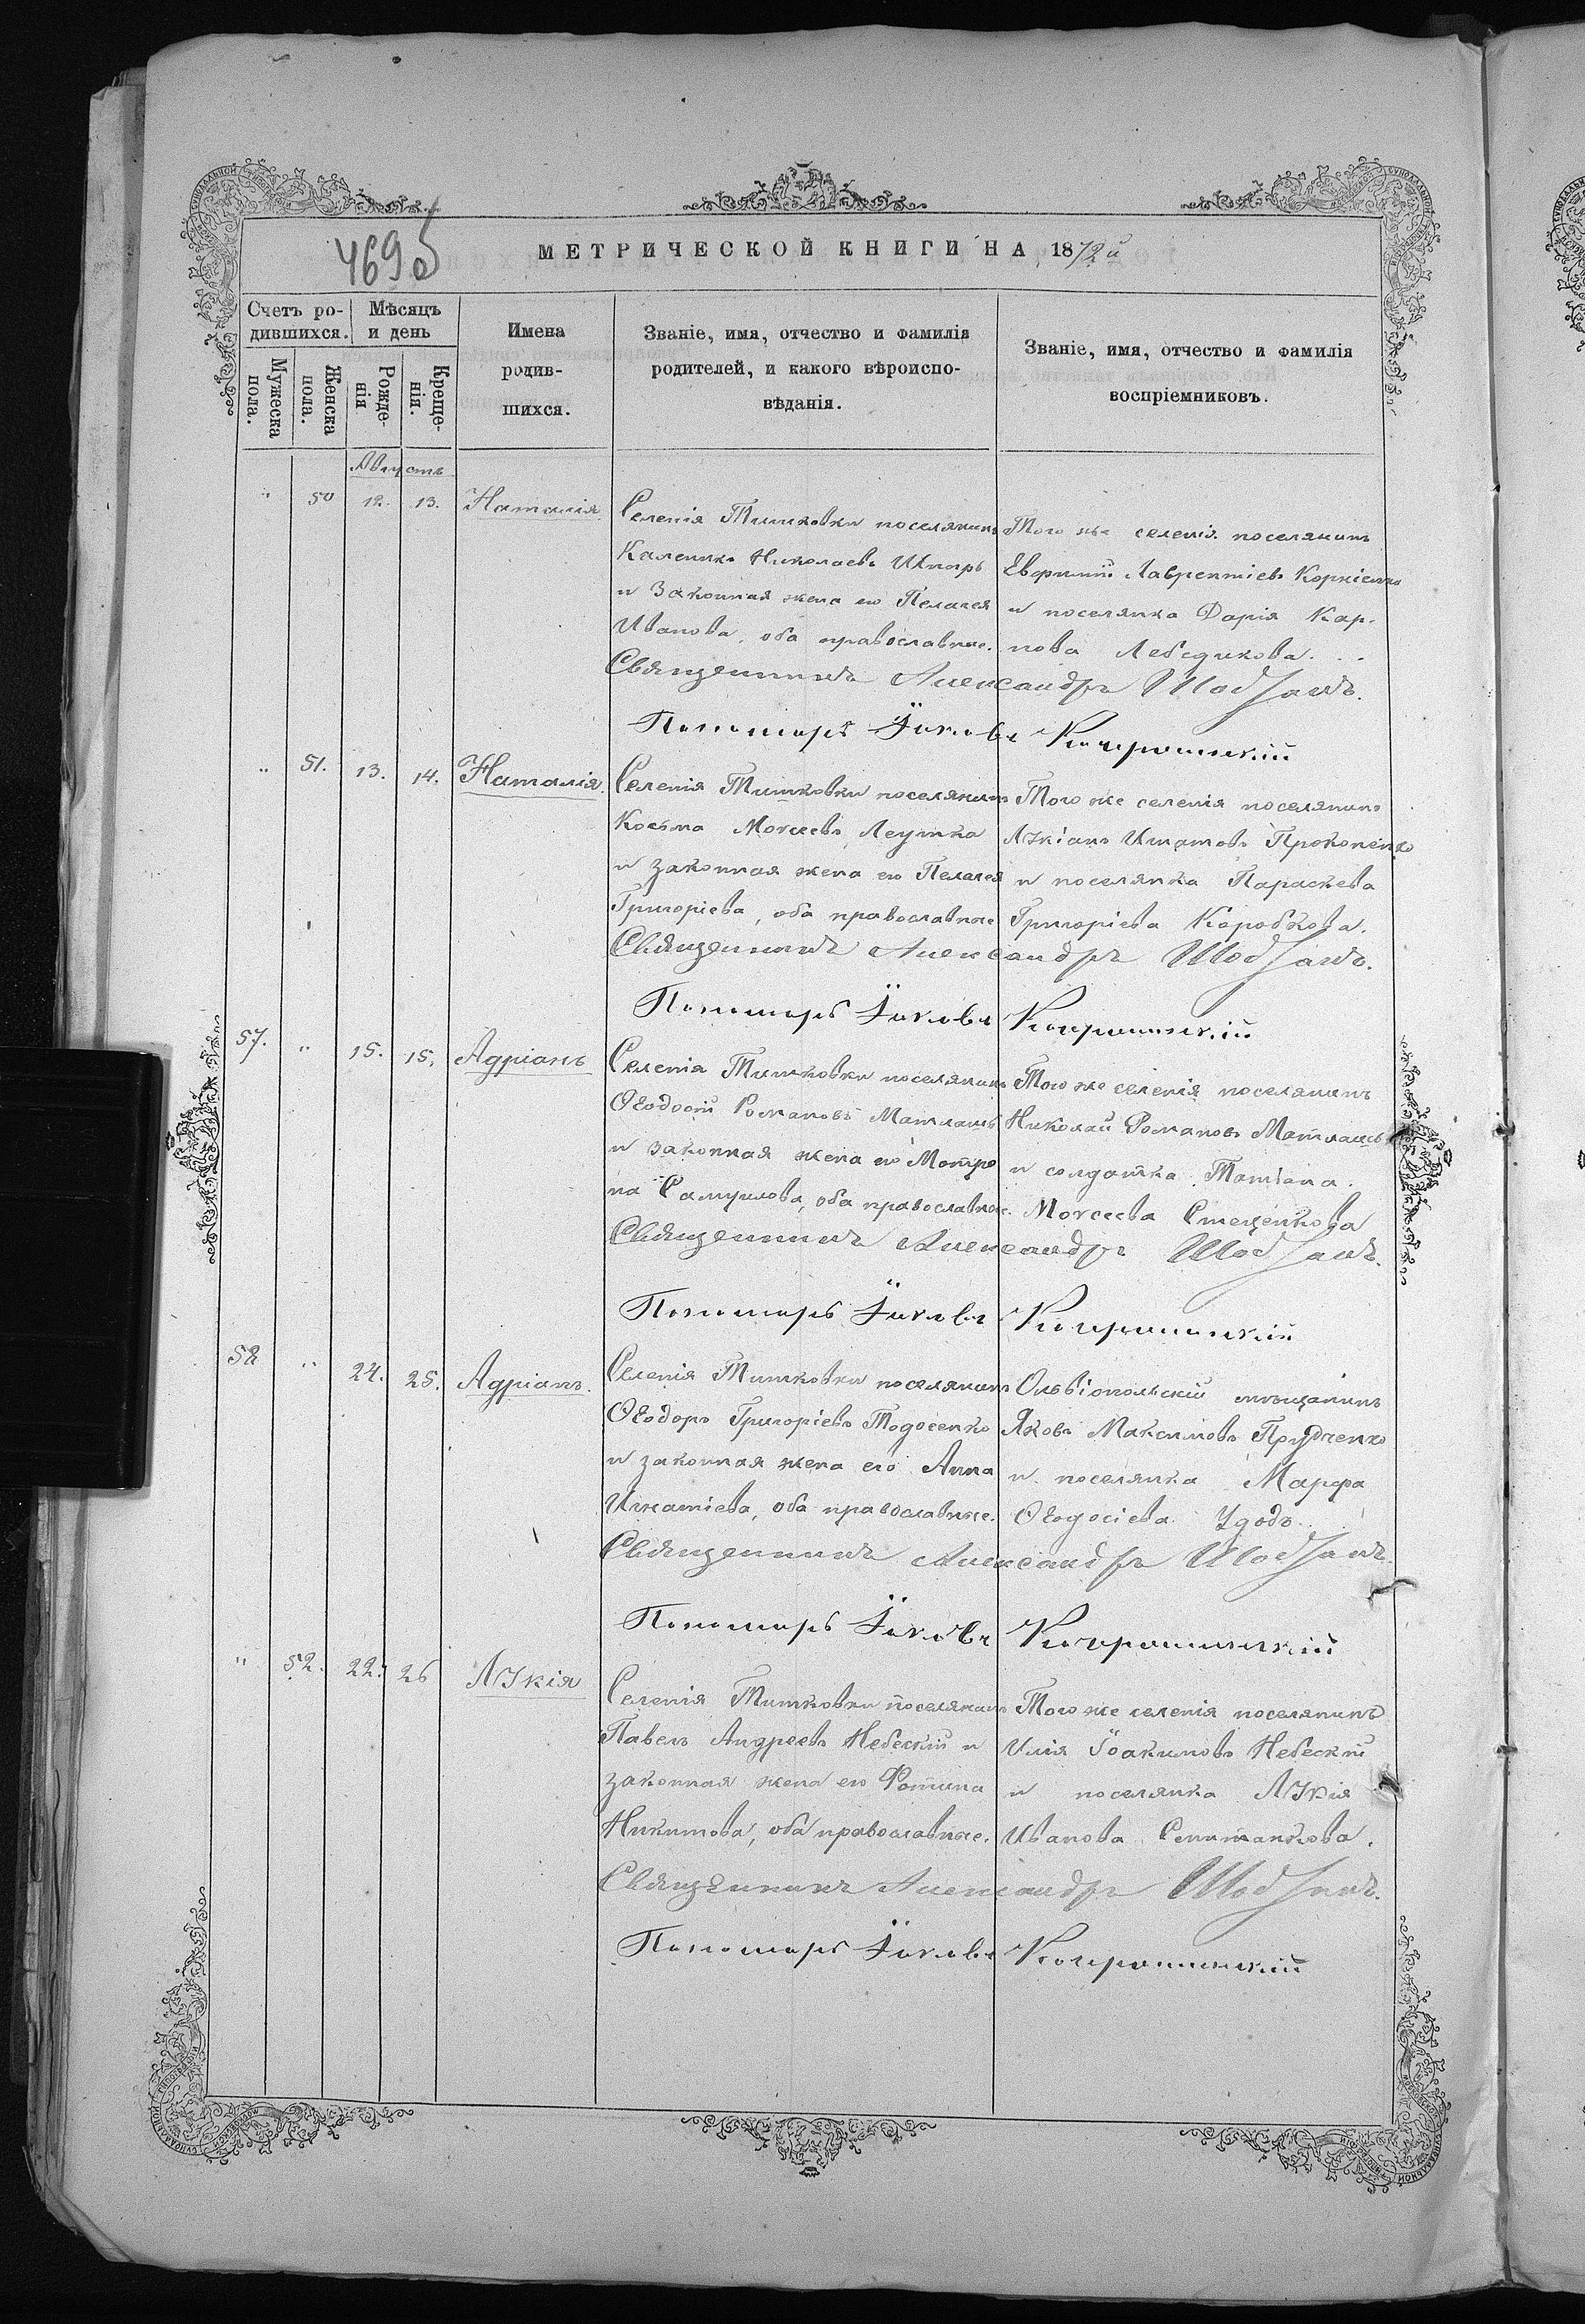 469 об
МЕТРИЧЕСКОЙ КНИГИ НА 1872й
Счетъ ро-
дившихся.
Мѣсяцъ
и день
Мужеска
пола.
Женска
пола.
Рожде-
нія
Креще-
нія.
Имена
родив-
шихся.
Званіе, имя, отчество и фамилія
родителей, и какого вѣроиспо-
вѣданія.
Званіе, имя, отчество и фамилія
воспріемниковъ.
Августъ
" 50 12. 13. Наталія.
Селенія Тишковки поселянинъ
Николаевъ
и законная жена его Пелагея
Иванова, оба православные.
Того же селенія поселянинъ
Евфимій Лаврентіевъ Корніенко
и поселянка Дарія Кар-
пова Лебедикова.
Священникъ Александръ
Пономарь Іаковъ
" 51. 13. 14. Наталія.
Селенія Тишковки поселянинъ
Косьма Моисеевъ Леушка
и законная жена его Пелагея
Григоріева, оба православные
Того же селенія поселянинъ
Лукіанъ Игнатовъ Прокопенко
и поселянка Параскева
Григоріева Коробкова.
Священникъ Александръ
Пономарь Іаковъ
57. " 15. 15. Адріанъ
Селенія Тишковки поселянинъ
Ѳеодосій Романовъ Матлашъ
и законная жена его Матро
на Самуилова, оба православные.
Того же селенія поселянинъ
Николай Романовъ Матлашъ
и солдатка Татіана
Моисеева Стеценкова
Священникъ Александръ
Пономарь Іаковъ
58 " 24. 25. Адріанъ.
Селенія Тишковки поселянинъ
Ѳеодоръ Григоріевъ Тодосенко
и законная жена его Анна
Игнатіева, оба православные.
Ольвіопольскій мѣщанинъ
Яковъ Максимовъ Прудченко
и поселянка Марфа
Ѳеодосіева Удодъ.
Священникъ Александръ
Пономарь Іаковъ
" 52. 22. 26 Лукія
Селенія Тишковки поселянинъ
Павелъ Андреевъ Небескій и
законная жена его Фотина
Никитова, оба православные.
Того же селенія поселянинъ
Илія Іоакимовъ Небескій
и поселянка Лукія
Иванова
Священникъ Александръ
Пономарь Іаковъ